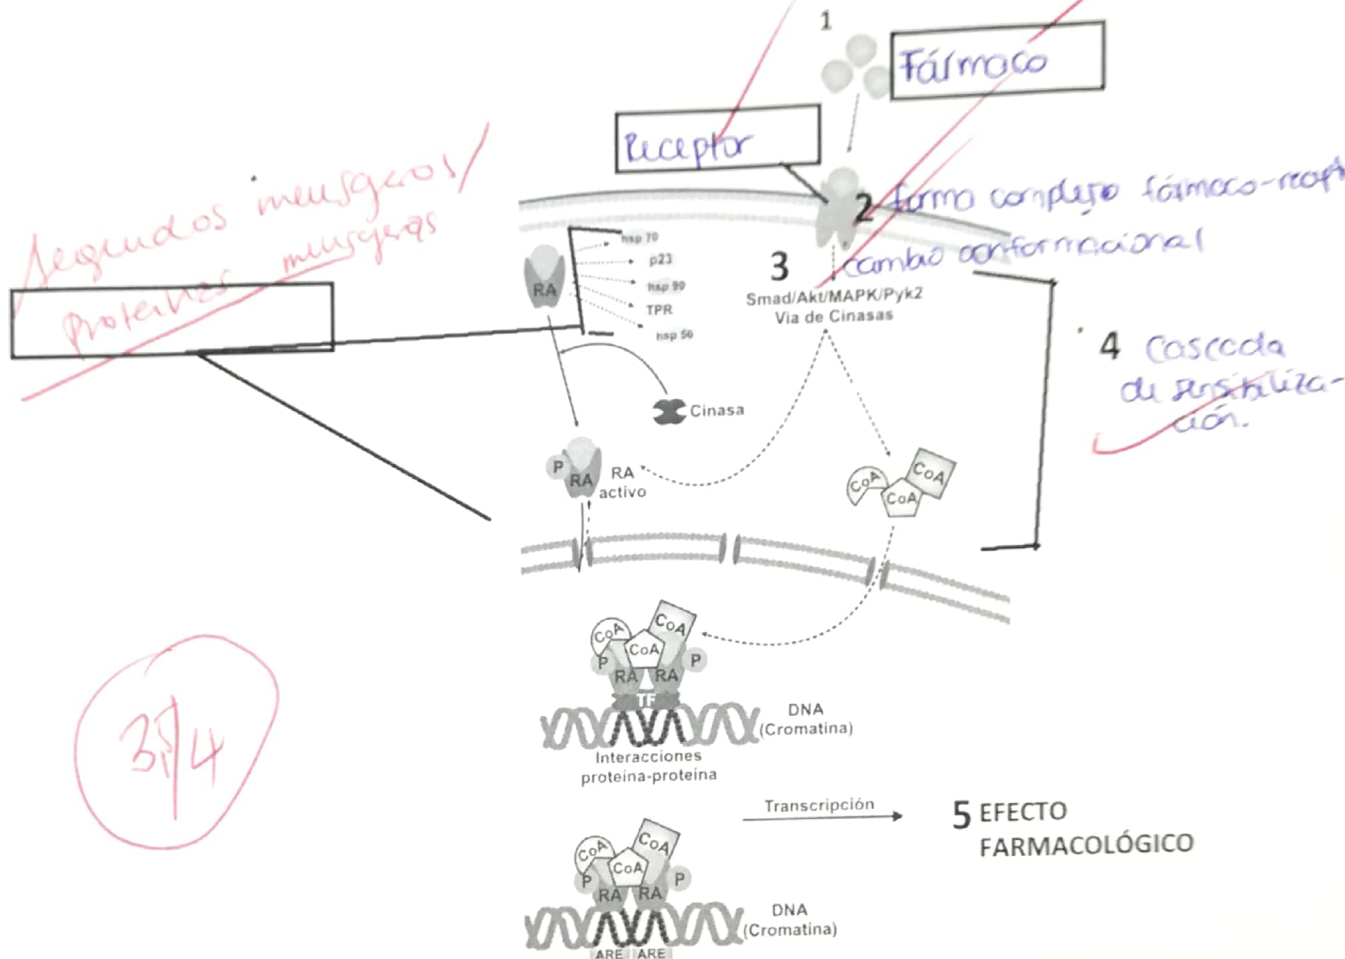 1
Fármaco
Receptor
2 forma complejo fármaco-recept
3 cambio conformacional
Segundos mensgeros/
proteínas mensgeras
hsp 70
p23
hsp 90
TPR
hsp 56
RA
Smad/Akt/MAPK/Pyk2
Via de Cinasas
4 Cascada
de sensibiliza-
ción.
Cinasa
P
RA
RA
activo
CoA
CoA
CoA
CoA
CoA
CoA
P
P
RA
RA
TF
DNA
(Cromatina)
Interacciones
proteína-proteína
3,5/4
Transcripción
5 EFECTO
FARMACOLÓGICO
CoA
CoA
CoA
P
P
RA
RA
DNA
(Cromatina)
ARE
ARE